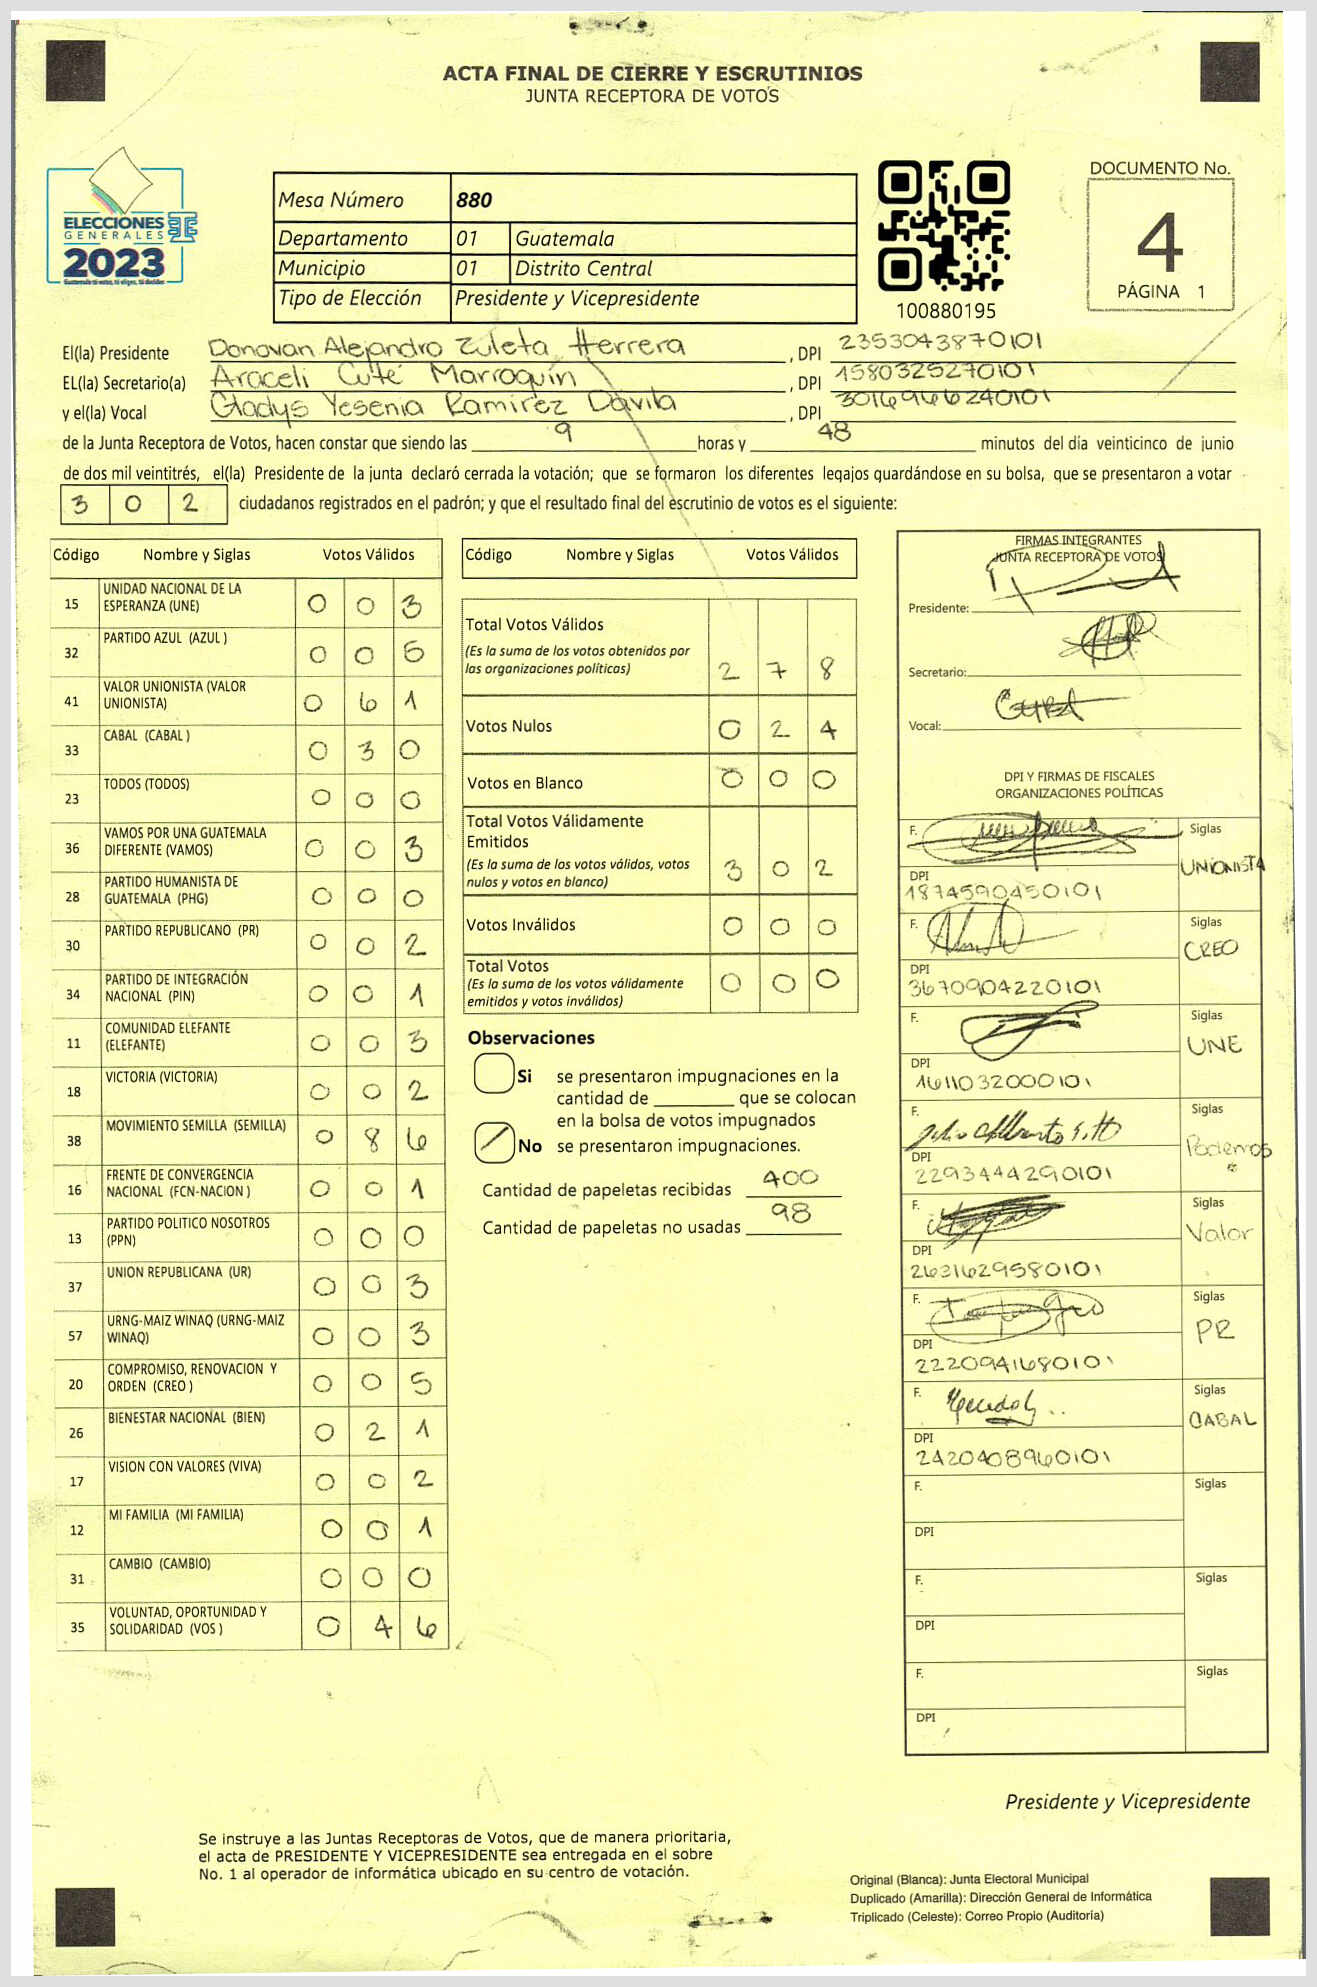 ACTA FINAL DE CIERRE Y ESCRUTINIOS
JUNTA RECEPTORA DE VOTOS
ELECCIONES
GENERALES
2023
Mesa Número 880
Departamento 01 Guatemala
Municipio 01 Distrito Central
Tipo de Elección Presidente y Vicepresidente
100880195
DOCUMENTO No.
4
PÁGINA 1
El(la) Presidente Donovan Alejandro Zuleta Herrera, DPI 2353043870101
EL(la) Secretario(a) Araceli Cuté Marroquín, DPI 1580325270101
y el(la) Vocal Gladys Yesenia Ramírez Dávila, DPI 3016946240101
de la Junta Receptora de Votos, hacen constar que siendo las 9 horas y 48 minutos del día veinticinco de junio
de dos mil veintitrés, el(la) Presidente de la junta declaró cerrada la votación; que se formaron los diferentes legajos quardándose en su bolsa, que se presentaron a votar
3 0 2 ciudadanos registrados en el padrón; y que el resultado final del escrutinio de votos es el siguiente:
Código Nombre y Siglas Votos Válidos
15 UNIDAD NACIONAL DE LA ESPERANZA (UNE) 0 0 3
32 PARTIDO AZUL (AZUL ) 0 0 5
41 VALOR UNIONISTA (VALOR UNIONISTA) 0 6 1
33 CABAL (CABAL ) 0 3 0
23 TODOS (TODOS) 0 0 0
36 VAMOS POR UNA GUATEMALA DIFERENTE (VAMOS) 0 0 3
28 PARTIDO HUMANISTA DE GUATEMALA (PHG) 0 0 0
30 PARTIDO REPUBLICANO (PR) 0 0 2
34 PARTIDO DE INTEGRACIÓN NACIONAL (PIN) 0 0 1
11 COMUNIDAD ELEFANTE (ELEFANTE) 0 0 3
18 VICTORIA (VICTORIA) 0 0 2
38 MOVIMIENTO SEMILLA (SEMILLA) 0 8 6
16 FRENTE DE CONVERGENCIA NACIONAL (FCN-NACION ) 0 0 1
13 PARTIDO POLITICO NOSOTROS (PPN) 0 0 0
37 UNION REPUBLICANA (UR) 0 0 3
57 URNG-MAIZ WINAQ (URNG-MAIZ WINAQ) 0 0 3
20 COMPROMISO, RENOVACION Y ORDEN (CREO ) 0 0 5
26 BIENESTAR NACIONAL (BIEN) 0 2 1
17 VISION CON VALORES (VIVA) 0 0 2
12 MI FAMILIA (MI FAMILIA) 0 0 1
31 CAMBIO (CAMBIO) 0 0 0
35 VOLUNTAD, OPORTUNIDAD Y SOLIDARIDAD (VOS ) 0 4 6
Código Nombre y Siglas Votos Válidos
Total Votos Válidos 2 7 8
(Es la suma de los votos obtenidos por
las organizaciones políticas)
Votos Nulos 0 2 4
Votos en Blanco 0 0 0
Total Votos Válidamente
Emitidos 3 0 2
(Es la suma de los votos válidos, votos
nulos y votos en blanco)
Votos Inválidos 0 0 0
Total Votos 0 0 0
(Es la suma de los votos válidamente
emitidos y votos inválidos)
Observaciones
Si se presentaron impugnaciones en la
cantidad de ________ que se colocan
en la bolsa de votos impugnados
No se presentaron impugnaciones.
Cantidad de papeletas recibidas 400
Cantidad de papeletas no usadas 98
FIRMAS INTEGRANTES
JUNTA RECEPTORA DE VOTOS
Presidente:
Secretario:
Vocal:
DPI Y FIRMAS DE FISCALES
ORGANIZACIONES POLÍTICAS
F. Siglas
UNIONISTA
DPI
1874590450101
F. Siglas
CREO
DPI
3670904220101
F. Siglas
UNE
DPI
1611032000101
F. Siglas
Podemos
DPI
2293444290101
F. Siglas
Valor
DPI
2631629580101
F. Siglas
PR
DPI
2220941680101
F. Siglas
CABAL
DPI
2420408960101
F. Siglas
DPI
F. Siglas
DPI
F. Siglas
DPI
Presidente y Vicepresidente
Se instruye a las Juntas Receptoras de Votos, que de manera prioritaria,
el acta de PRESIDENTE Y VICEPRESIDENTE sea entregada en el sobre
No. 1 al operador de informática ubicado en su centro de votación.
Original (Blanca): Junta Electoral Municipal
Duplicado (Amarilla): Dirección General de Informática
Triplicado (Celeste): Correo Propio (Auditoría)